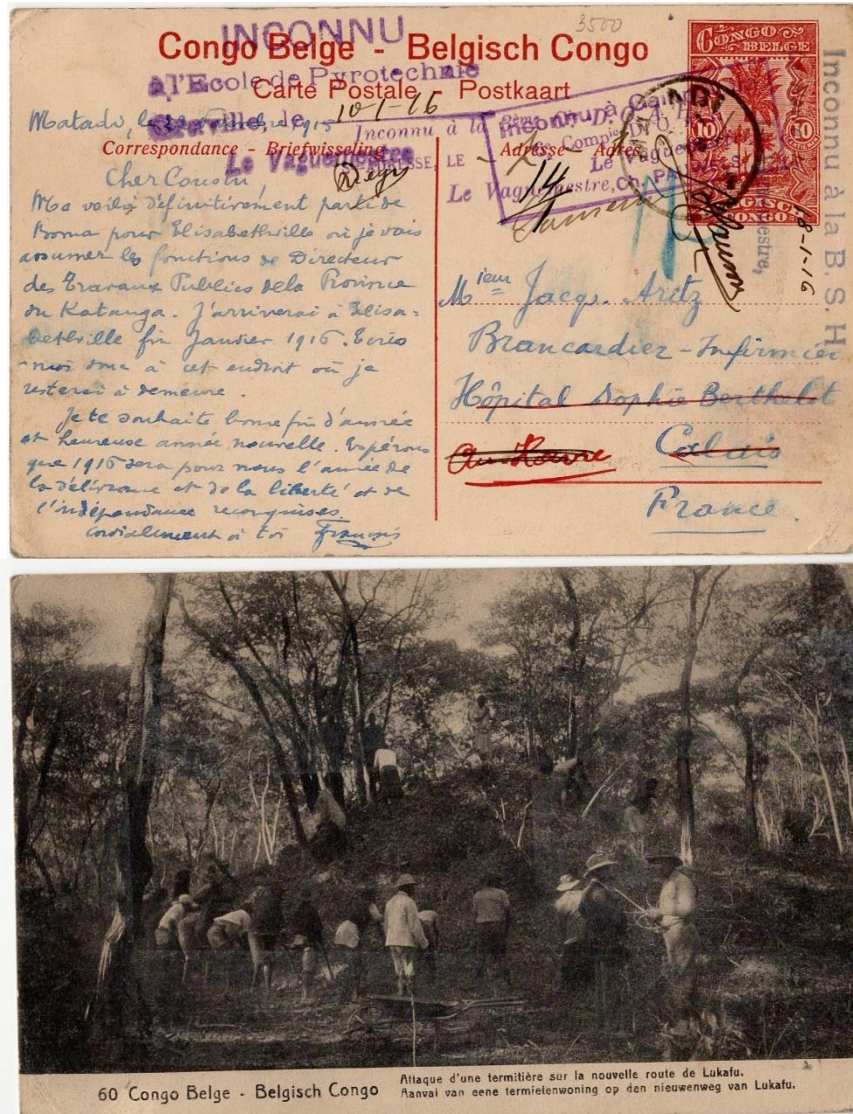 3500
INCONNU
Congo Belge - Belgisch Congo
à l'Ecole de Pyrotechnie
Carte Postale - Postkaart
Graville, le 10-1-16
Matadi, le 1915
Inconnu à la
Correspondance - Briefwisseling
Adresse - Adres
Le Vaguemestre
Inconnu à
Le Vaguemestre,
14
CONGO BELGE
10 10
BELGISCH CONGO
Inconnu à la B. S. H.
18-1-16
Cher Cousin,
Me voilà définitivement parti de
Boma pour Elisabethville où je vais
assumer les fonctions de Directeur
des Travaux Publics de la Province
du Katanga. J'arriverai à Elisa-
bethville fin Janvier 1916. Ecris
-moi donc à cet endroit où je
resterai à demeure.
Je te souhaite bonne fin d'année
et heureuse année nouvelle. Espérons
que 1916 sera pour nous l'année de
la délivrance et de la liberté et de
l'indépendance reconquises.
Cordialement à toi François
Mr Jacq. Aritz
Brancardier - Infirmier
Hôpital Sophie Berthelot
Au Havre Calais
France.
60 Congo Belge - Belgisch Congo
Attaque d'une termitière sur la nouvelle route de Lukafu.
Aanval van eene termietenwoning op den nieuwenweg van Lukafu.